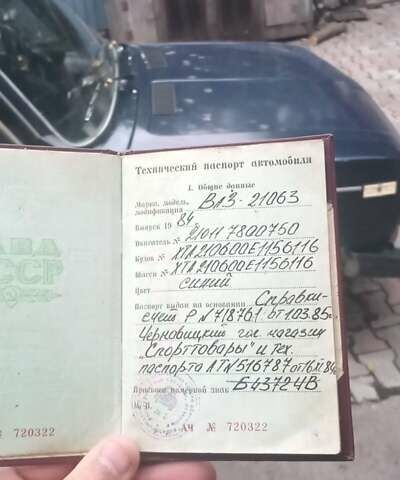 АВА
СССР
№ 720322
Технический паспорт автомобиля
1. Общие данные
Марка, модель, модификация ВАЗ-21063
Выпуск 19 84
Двигатель № 21011 7800750
Кузов № ХТА210600Е1156116
Шасси № ХТА210600Е1156116
Цвет синий
Паспорт выдан на основании Справки-
счет Р №718761 от 1.03.85г.
Черновицкий магазин
"Спорттовары" и тех.
паспорта ЛТ №516787 от
номерной знак Б4372ЧВ
М. П.
АЧ № 720322